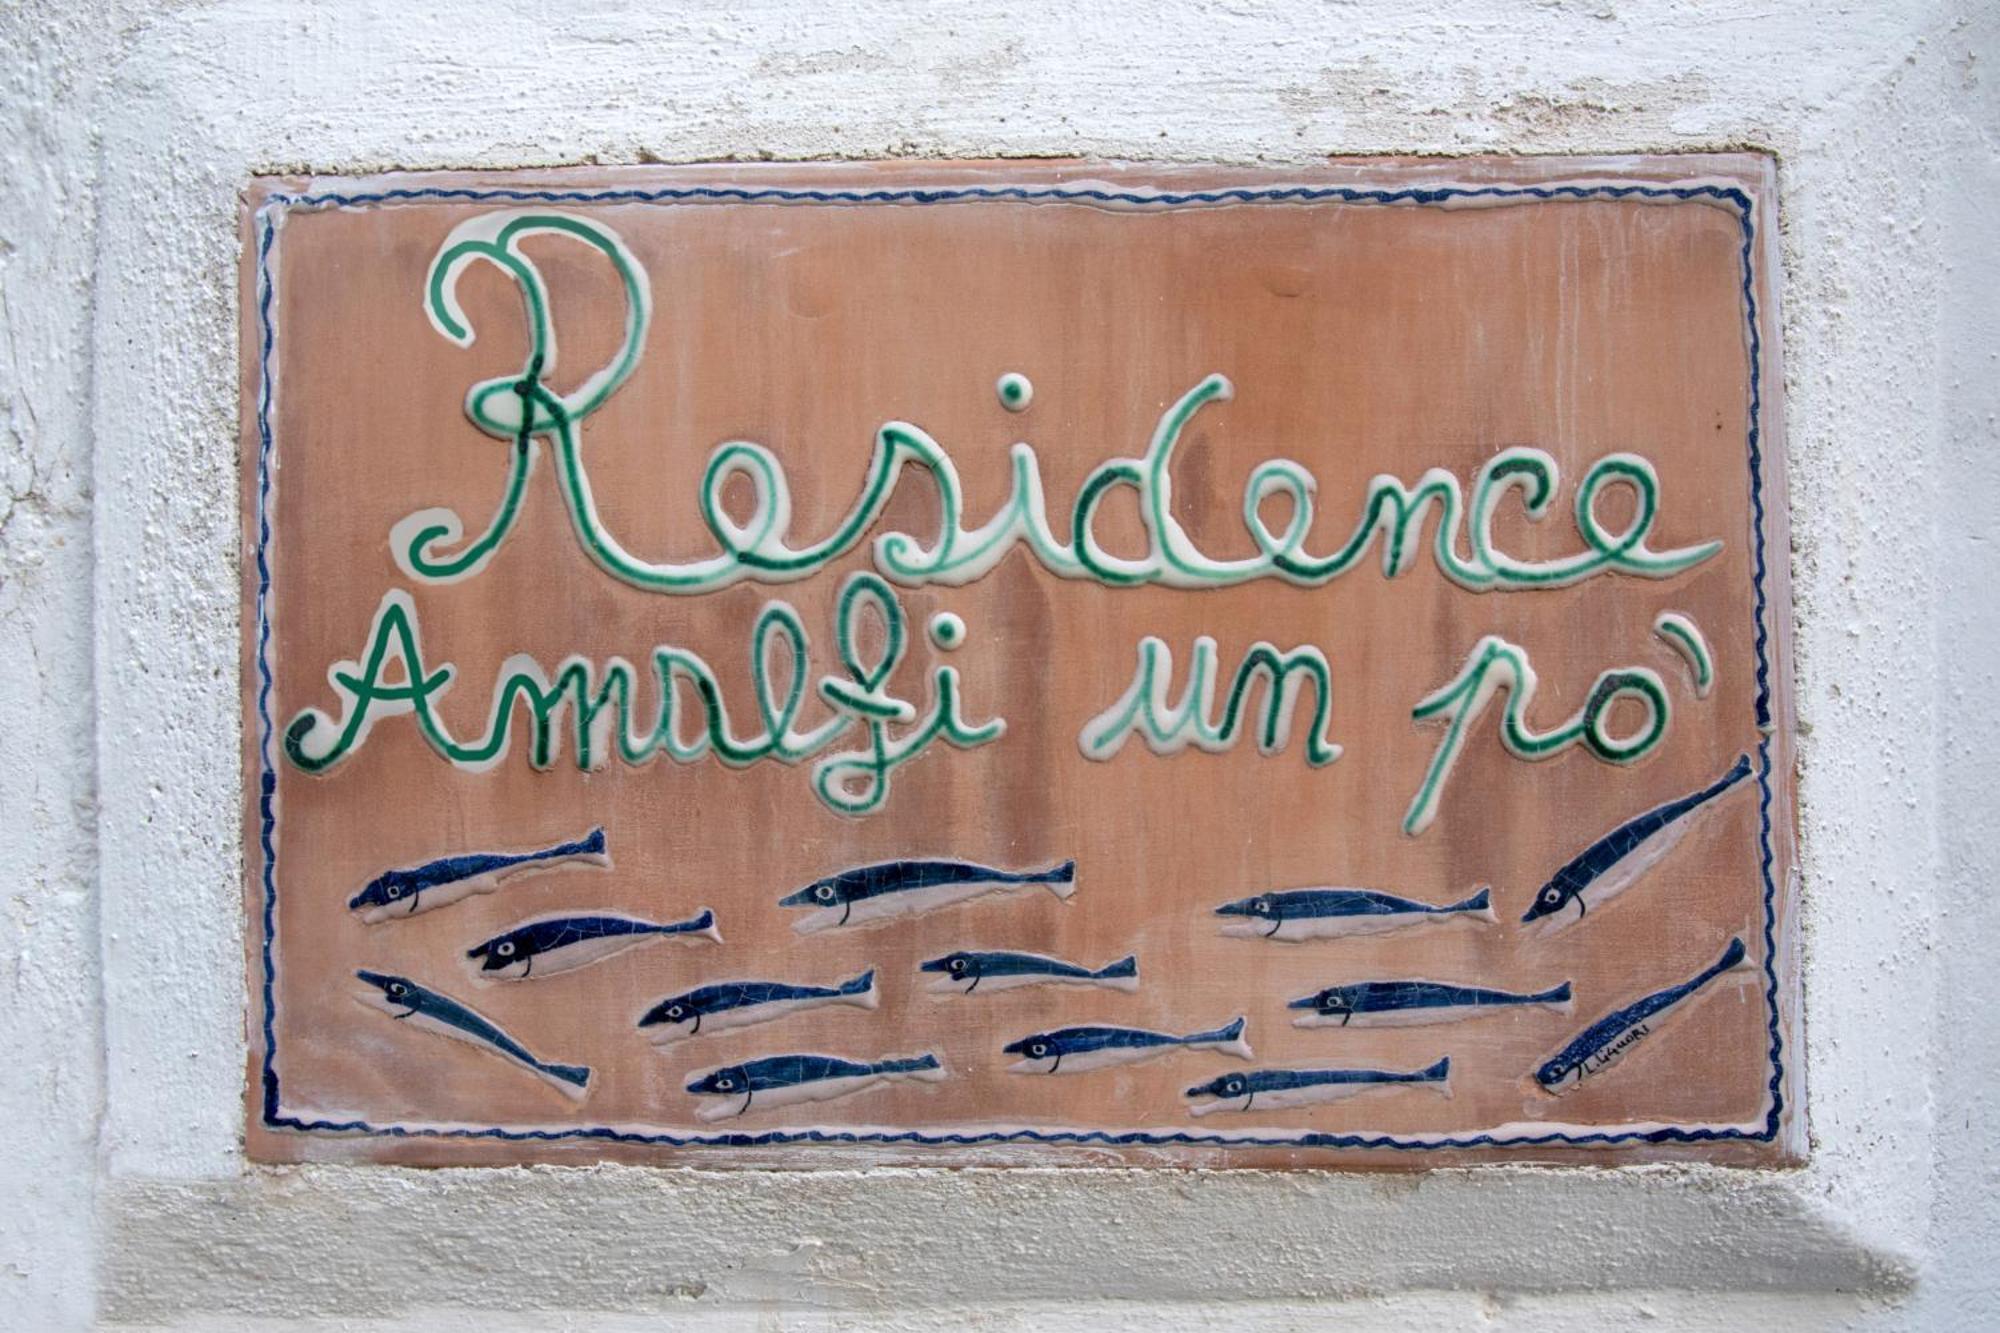 Residence
Amalfi un pò
L. LIGUORI